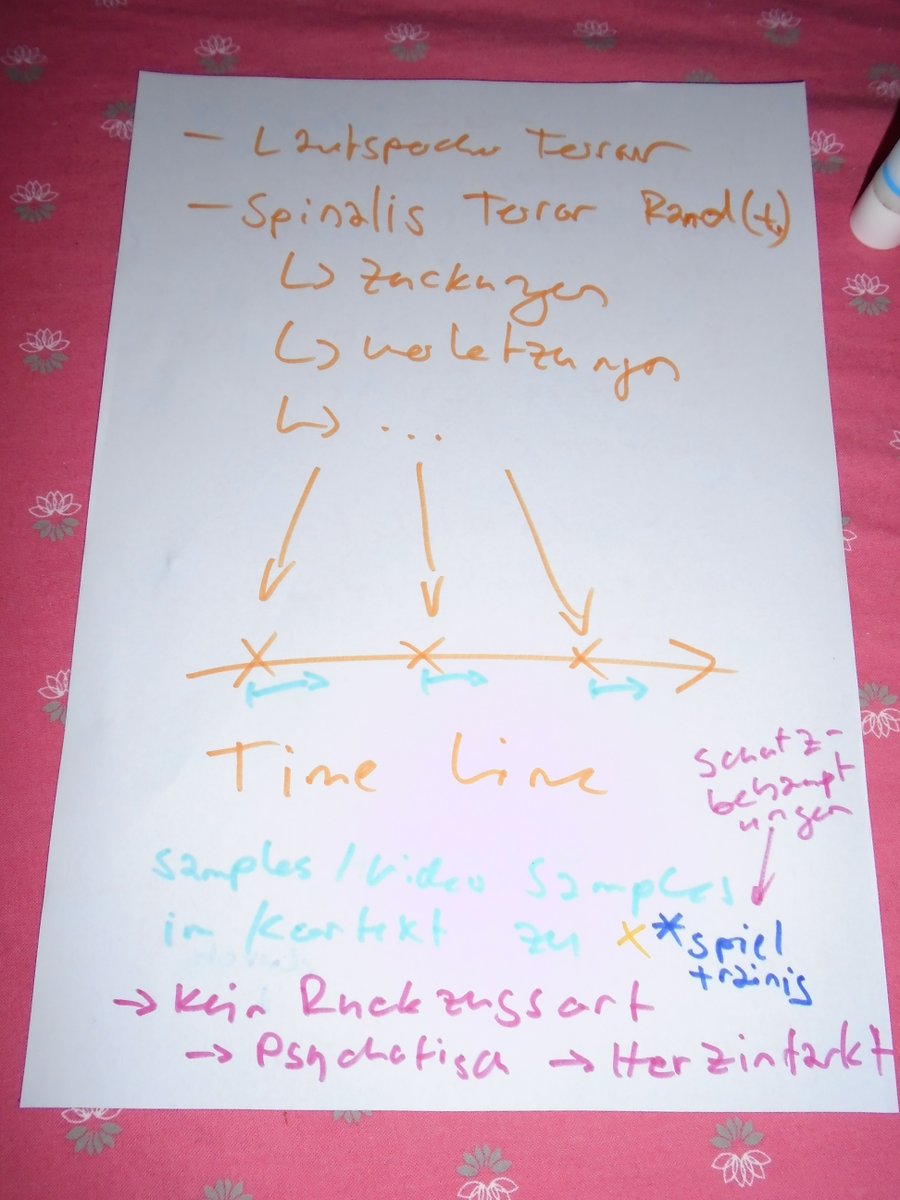 - Lautspecher Terror
- Spinalis Terror Rand(t)
↳ Zuckungen
↳ verletzungen
↳ ...
Time Line
Schutz-
behaupt
ungen
samples / Video Samples
in Kontext zu x *spiel
trainig
→ kein Rückzugsort
→ Psychotisch → Herzinfarkt